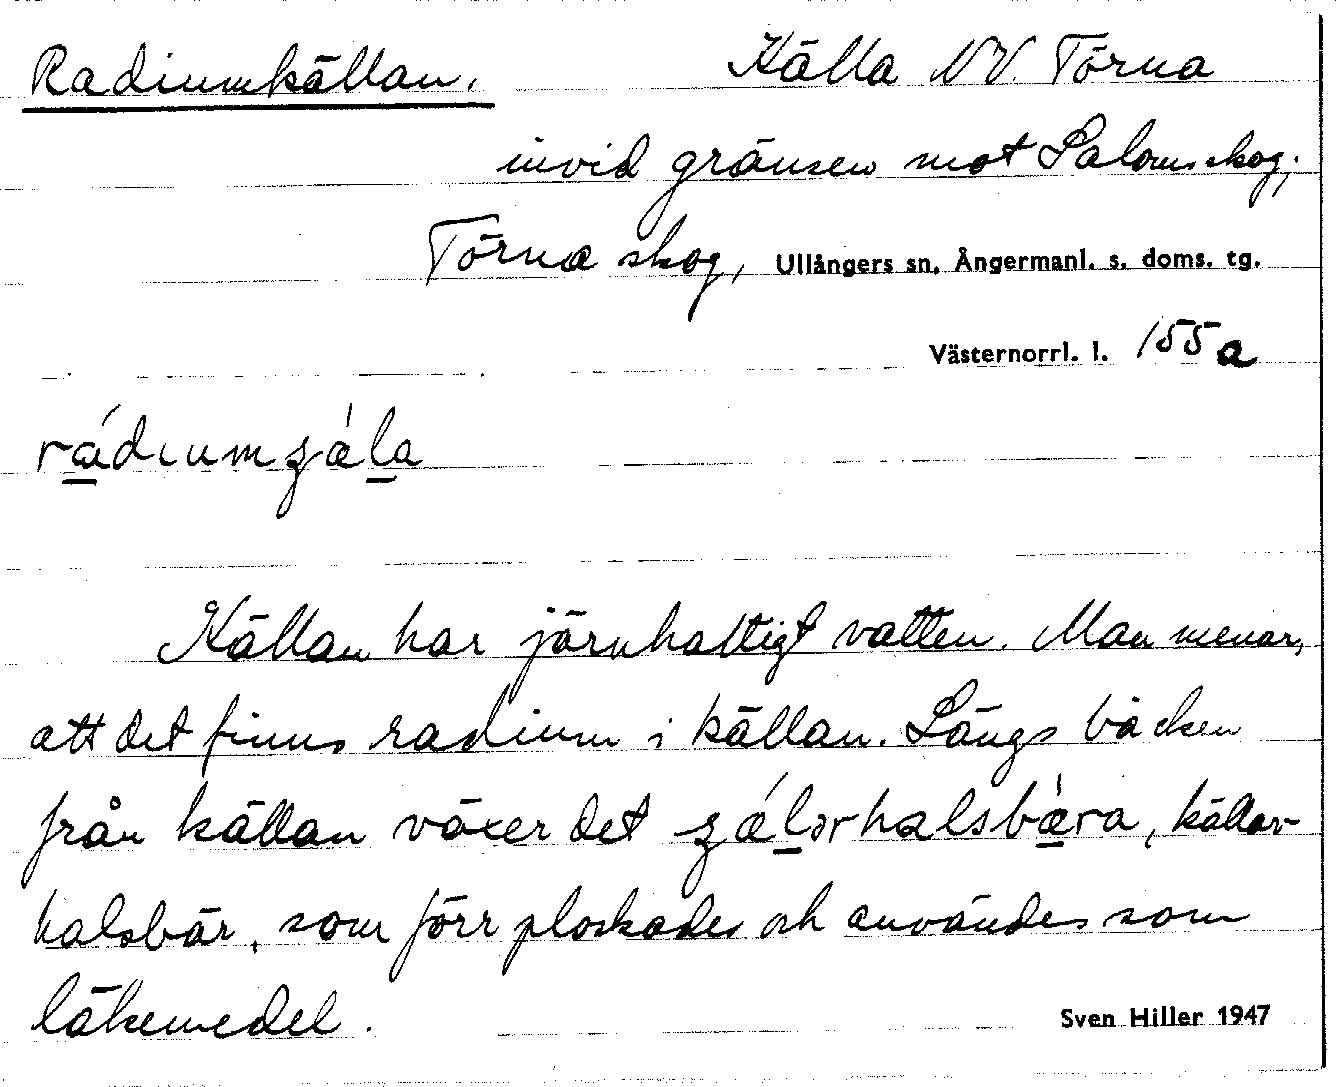 Radiumkällan. Källa NV. Törna
invid gränsen mot Salomskog;
Törna skog, Ullångers sn, Ångermanl. s. doms. tg.
Västernorrl. l. 155a
Källan har järnhaltigt vatten. Man menar,
att det finns radium i källan. Längs bäcken
från källan växer det källar-
halsbär, som förr plockades och användes som
läkemedel.
Sven Hiller 1947